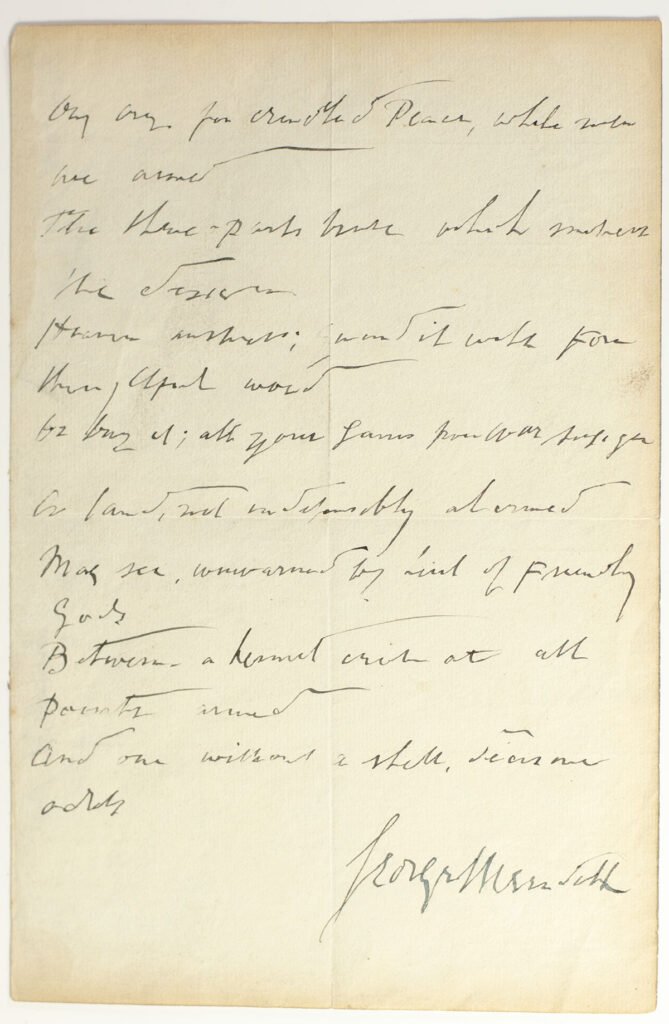 cry for cradled Peace, while men
are
The three-parts brute which smothers
the
Heaven answers; guard it with fore
thoughtful
Or buy it; all your gains from War resign
A land, not indefensibly alarmed
May see, unwarned by hint of Friendly
Gods
Between a hermit crab at all
points armed
And one without a shell, decisive
odds
George Meredith